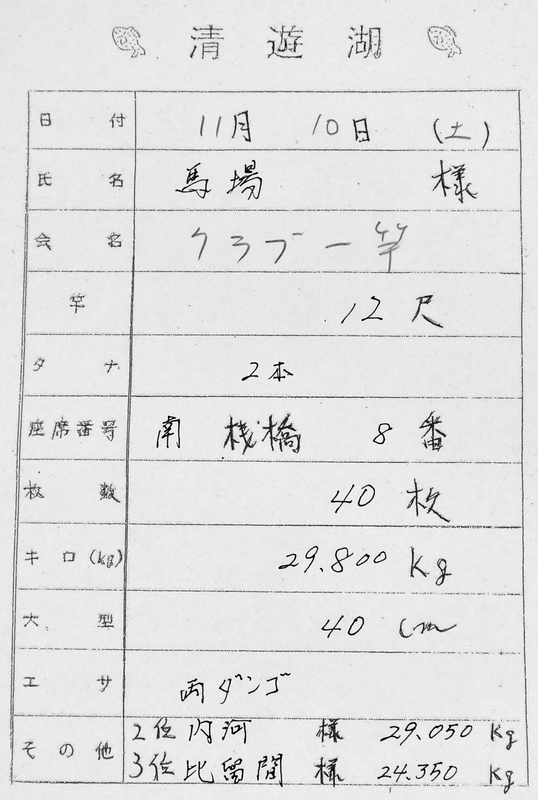 清遊湖
日付 11月 10日 (土)
氏名 馬場 様
会名 クラブ一竿
竿 12尺
タナ 2本
座席番号 南 桟橋 8番
枚数 40枚
キロ(kg) 29.800 Kg
大型 40 cm
エサ 両ダンゴ
その他 2位 内河 様 29.050 Kg
3位 比留間 様 24.350 Kg